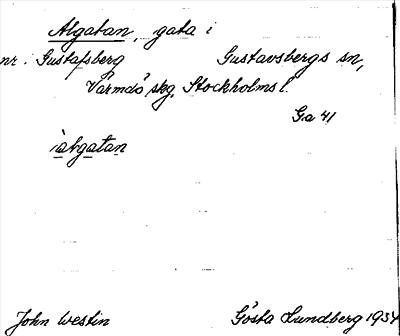 Algatan, gata i
nr. Gustafsberg Gustavsbergs sn,
Värmdö skg. Stockholms l.
Ga 41
àlgatan
John Westin Gösta Lundberg 1934